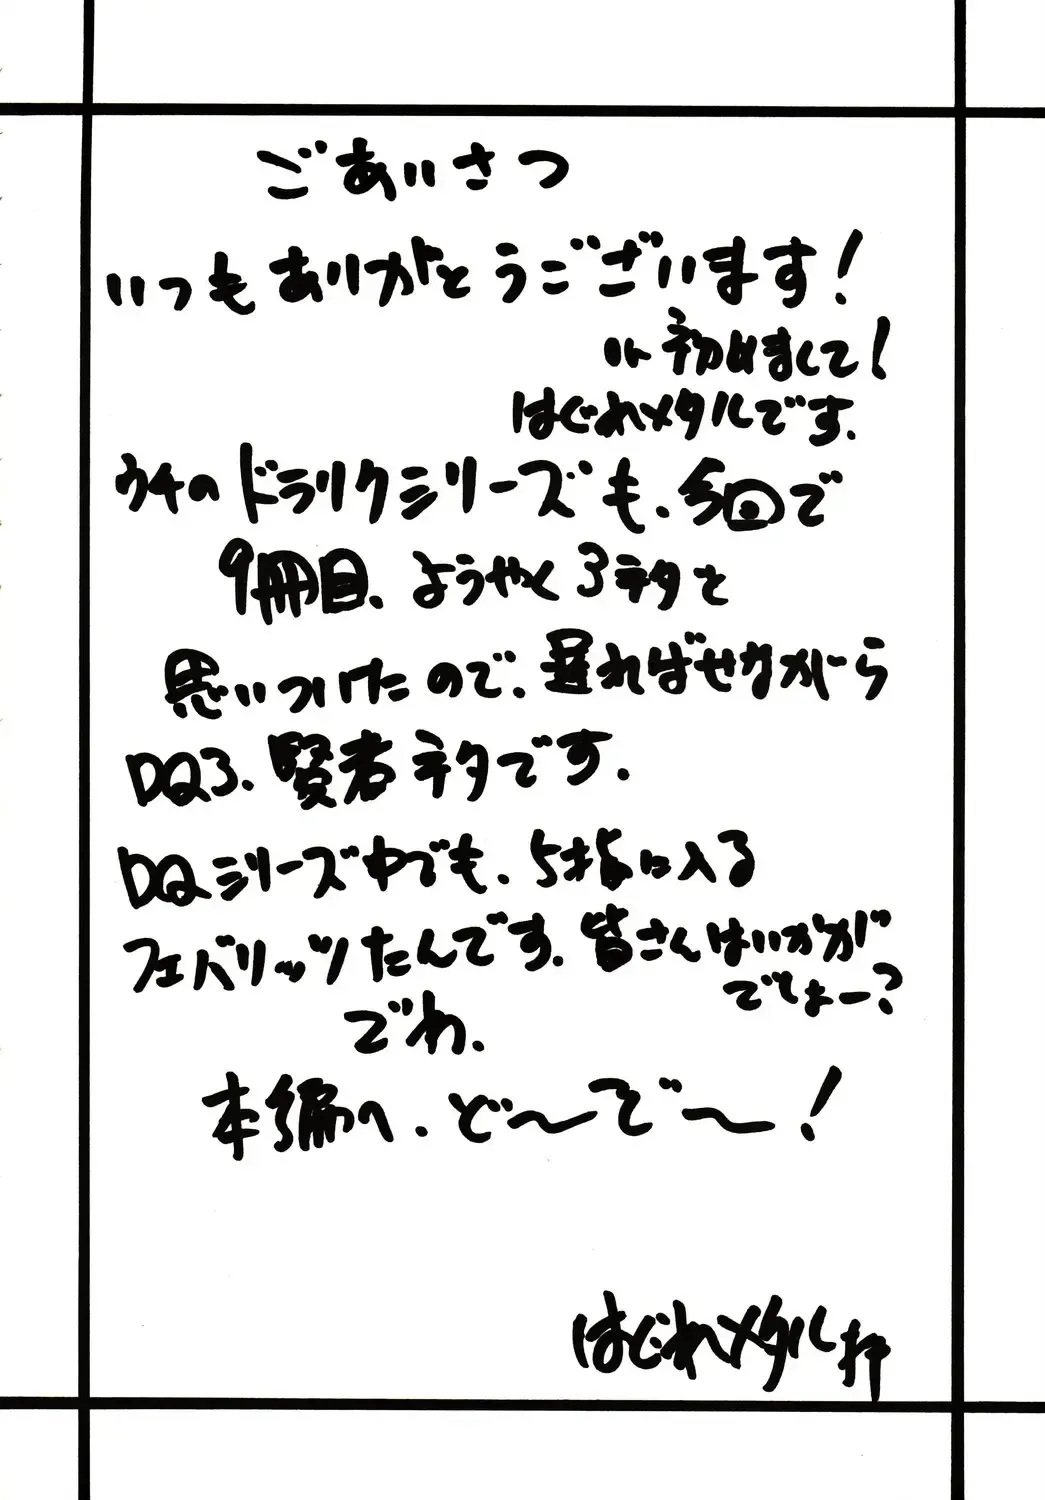 ごあいさつ
いつもありがとうございます!
or 初めまして!
はぐれメタルです.
ウチのドラクシリーズも、今回で
9冊目、ようやく3ネタと
思いつけたので、遅ればせながら
DQ3、賢者ネタです.
DQシリーズ中でも、5指に入る
フェバリッツたんです.皆さんはいかが
でしょー?
でわ、
本編へ、ど〜ぞ〜!
はぐれメタル拝